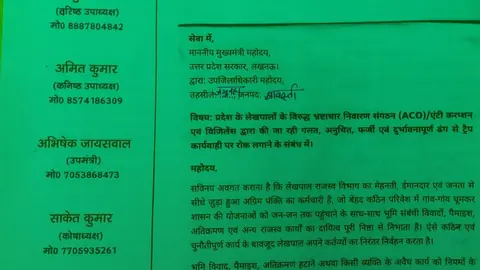 (वरिष्ठ उपाध्यक्ष)
मो0 8887804842
अमित कुमार
(कनिष्ठ उपाध्यक्ष)
मो0 8574186309
अभिषेक जायसवाल
(उपमंत्री)
मो0 7053868473
साकेत कुमार
(कोषाध्यक्ष)
मो0 7705935261
सेवा में,
माननीय मुख्यमंत्री महोदय,
उत्तर प्रदेश सरकार, लखनऊ।
द्वारा: उपजिलाधिकारी महोदय,
तहसील: जमुनहा जनपद: श्रावस्ती
विषय: प्रदेश के लेखपालों के विरुद्ध भ्रष्टाचार निवारण संगठन (ACO)/एंटी करप्शन
एवं विजिलेंस द्वारा की जा रही गलत, अनुचित, फर्जी एवं दुर्भावनापूर्ण ढंग से ट्रैप
कार्यवाही पर रोक लगाने के संबंध में।
महोदय,
सविनय अवगत कराना है कि लेखपाल राजस्व विभाग का मेहनती, ईमानदार एवं जनता से
सीधे जुड़ा हुआ अग्रिम पंक्ति का कर्मचारी है, जो बेहद कठिन परिवेश में गांव-गांव घूमकर
शासन की योजनाओं को जन-जन तक पहुंचाने के साथ-साथ भूमि संबंधी विवादों, पैमाइश,
अतिक्रमण एवं अन्य राजस्व कार्यों का दायित्व पूरी निष्ठा से निभाता है। ऐसे कठिन एवं
चुनौतीपूर्ण कार्य के बावजूद लेखपाल अपने कर्तव्यों का निरंतर निर्वहन करता है।
भूमि विवाद, पैमाइश, अतिक्रमण हटाने अथवा किसी व्यक्ति के अवैध कार्य को नियमों के